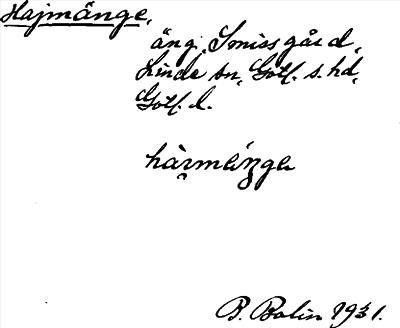 Hajmänge,
äng, Smiss gård,
Linde sn, Gotl. s. hd,
Gotl. l.
B. Bolin 1931.